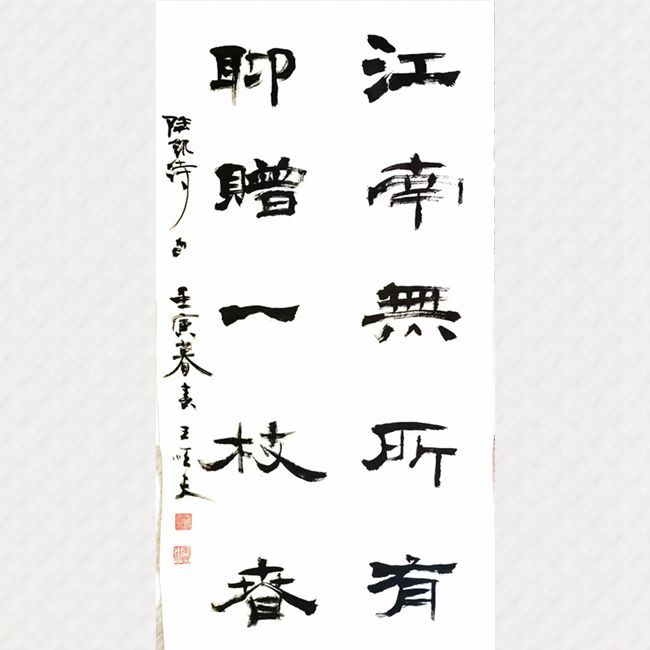 江南無所有
聊贈一枝春
陸凱诗句
壬寅暮春王